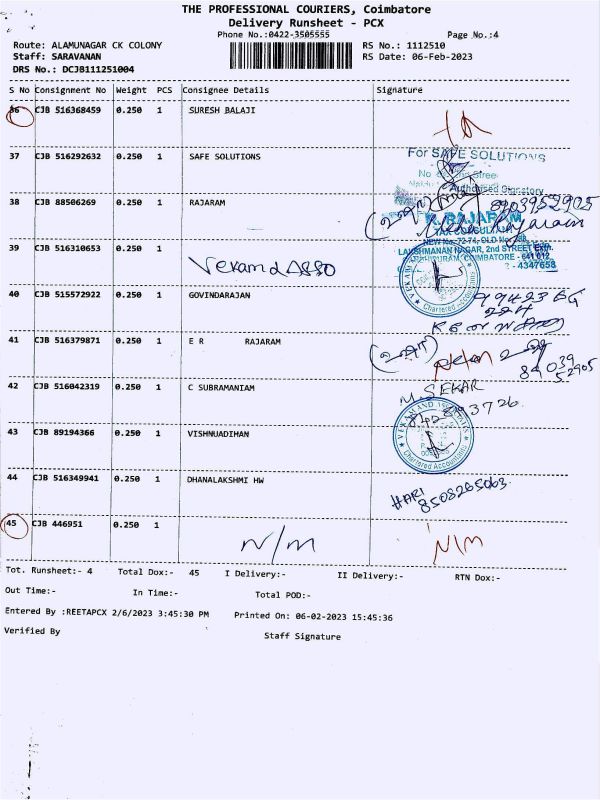 THE PROFESSIONAL COURIERS, Coimbatore
Delivery Runsheet - PCX
Phone No.:0422-3505555 Page No.:4
Route: ALAMUNAGAR CK COLONY RS No.: 1112510
Staff: SARAVANAN RS Date: 06-Feb-2023
DRS No.: DCJB111251004
S No Consignment No Weight PCS Consignee Details Signature
36 CJB 516368459 0.250 1 SURESH BALAJI
37 CJB 516292632 0.250 1 SAFE SOLUTIONS
For SAFE SOLUTIONS
Authorised Signatory
38 CJB 88506269 0.250 1 RAJARAM
8903952905
K. RAJARAM
TAX CONSULTANT
LAKSHMANAN NAGAR, 2nd STREET EXTN.
COIMBATORE - 641 012
39 CJB 516310653 0.250 1 Vekam & ASSO
4347658
Chartered Accountants
40 CJB 515572922 0.250 1 GOVINDARAJAN
41 CJB 516379871 0.250 1 E R RAJARAM
42 CJB 516042319 0.250 1 C SUBRAMANIAM
M. SEKAR
43 CJB 89194366 0.250 1 VISHNUADIHAN
VEKAM AND ASSOCIATES
Chartered Accountants
44 CJB 516349941 0.250 1 DHANALAKSHMI HW
HARI
8508265063
45 CJB 446951 0.250 1 N/M N/M
Tot. Runsheet:- 4 Total Dox:- 45 I Delivery:- II Delivery:- RTN Dox:-
Out Time:- In Time:- Total POD:-
Entered By :REETAPCX 2/6/2023 3:45:30 PM Printed On: 06-02-2023 15:45:36
Verified By Staff Signature